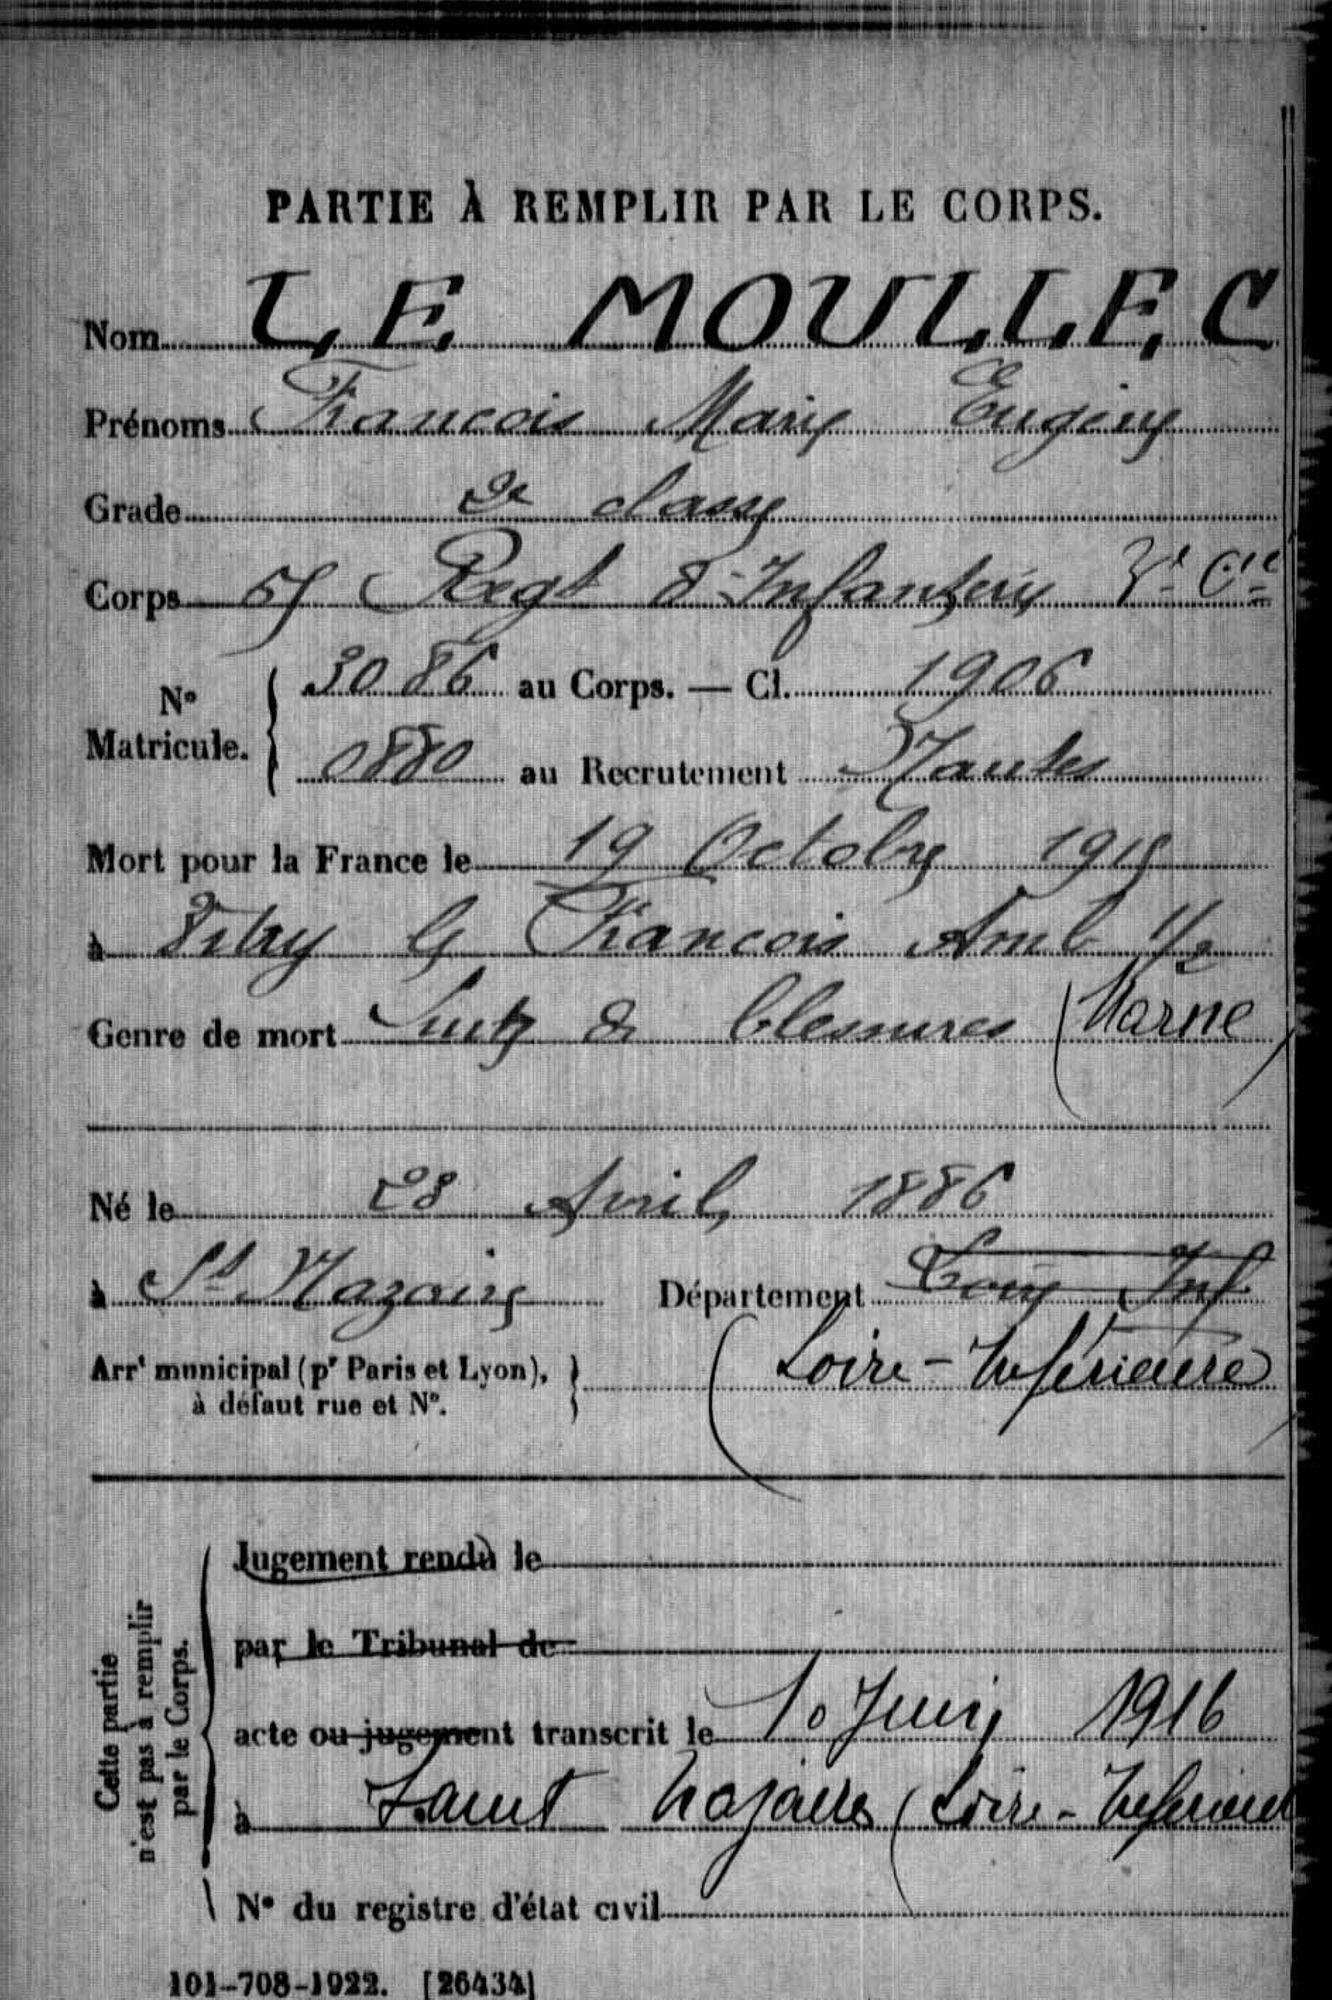 PARTIE À REMPLIR PAR LE CORPS.
Nom LE MOULLEC
Prénoms Francois Marie Eugène
Grade 2e classe
Corps Regt d'Infanterie Cie
No Matricule. 3086 au Corps. — Cl. 1906
0880 au Recrutement Nantes
Mort pour la France le 19 Octobre 1915
à Vitry le Francois Amb
Genre de mort Suite de blessures (Marne)
Né le 28 Avril 1886
à St Nazaire Département Loire Inf
Arrt municipal (pr Paris et Lyon), (Loire-Inférieure)
à défaut rue et No.
Cette partie n'est pas à remplir par le Corps.
Jugement rendu le
par le Tribunal de
acte ou jugement transcrit le 10 Juin 1916
à Saint Nazaire (Loire-Inférieure
No du registre d'état civil
101-708-1922. [26434]